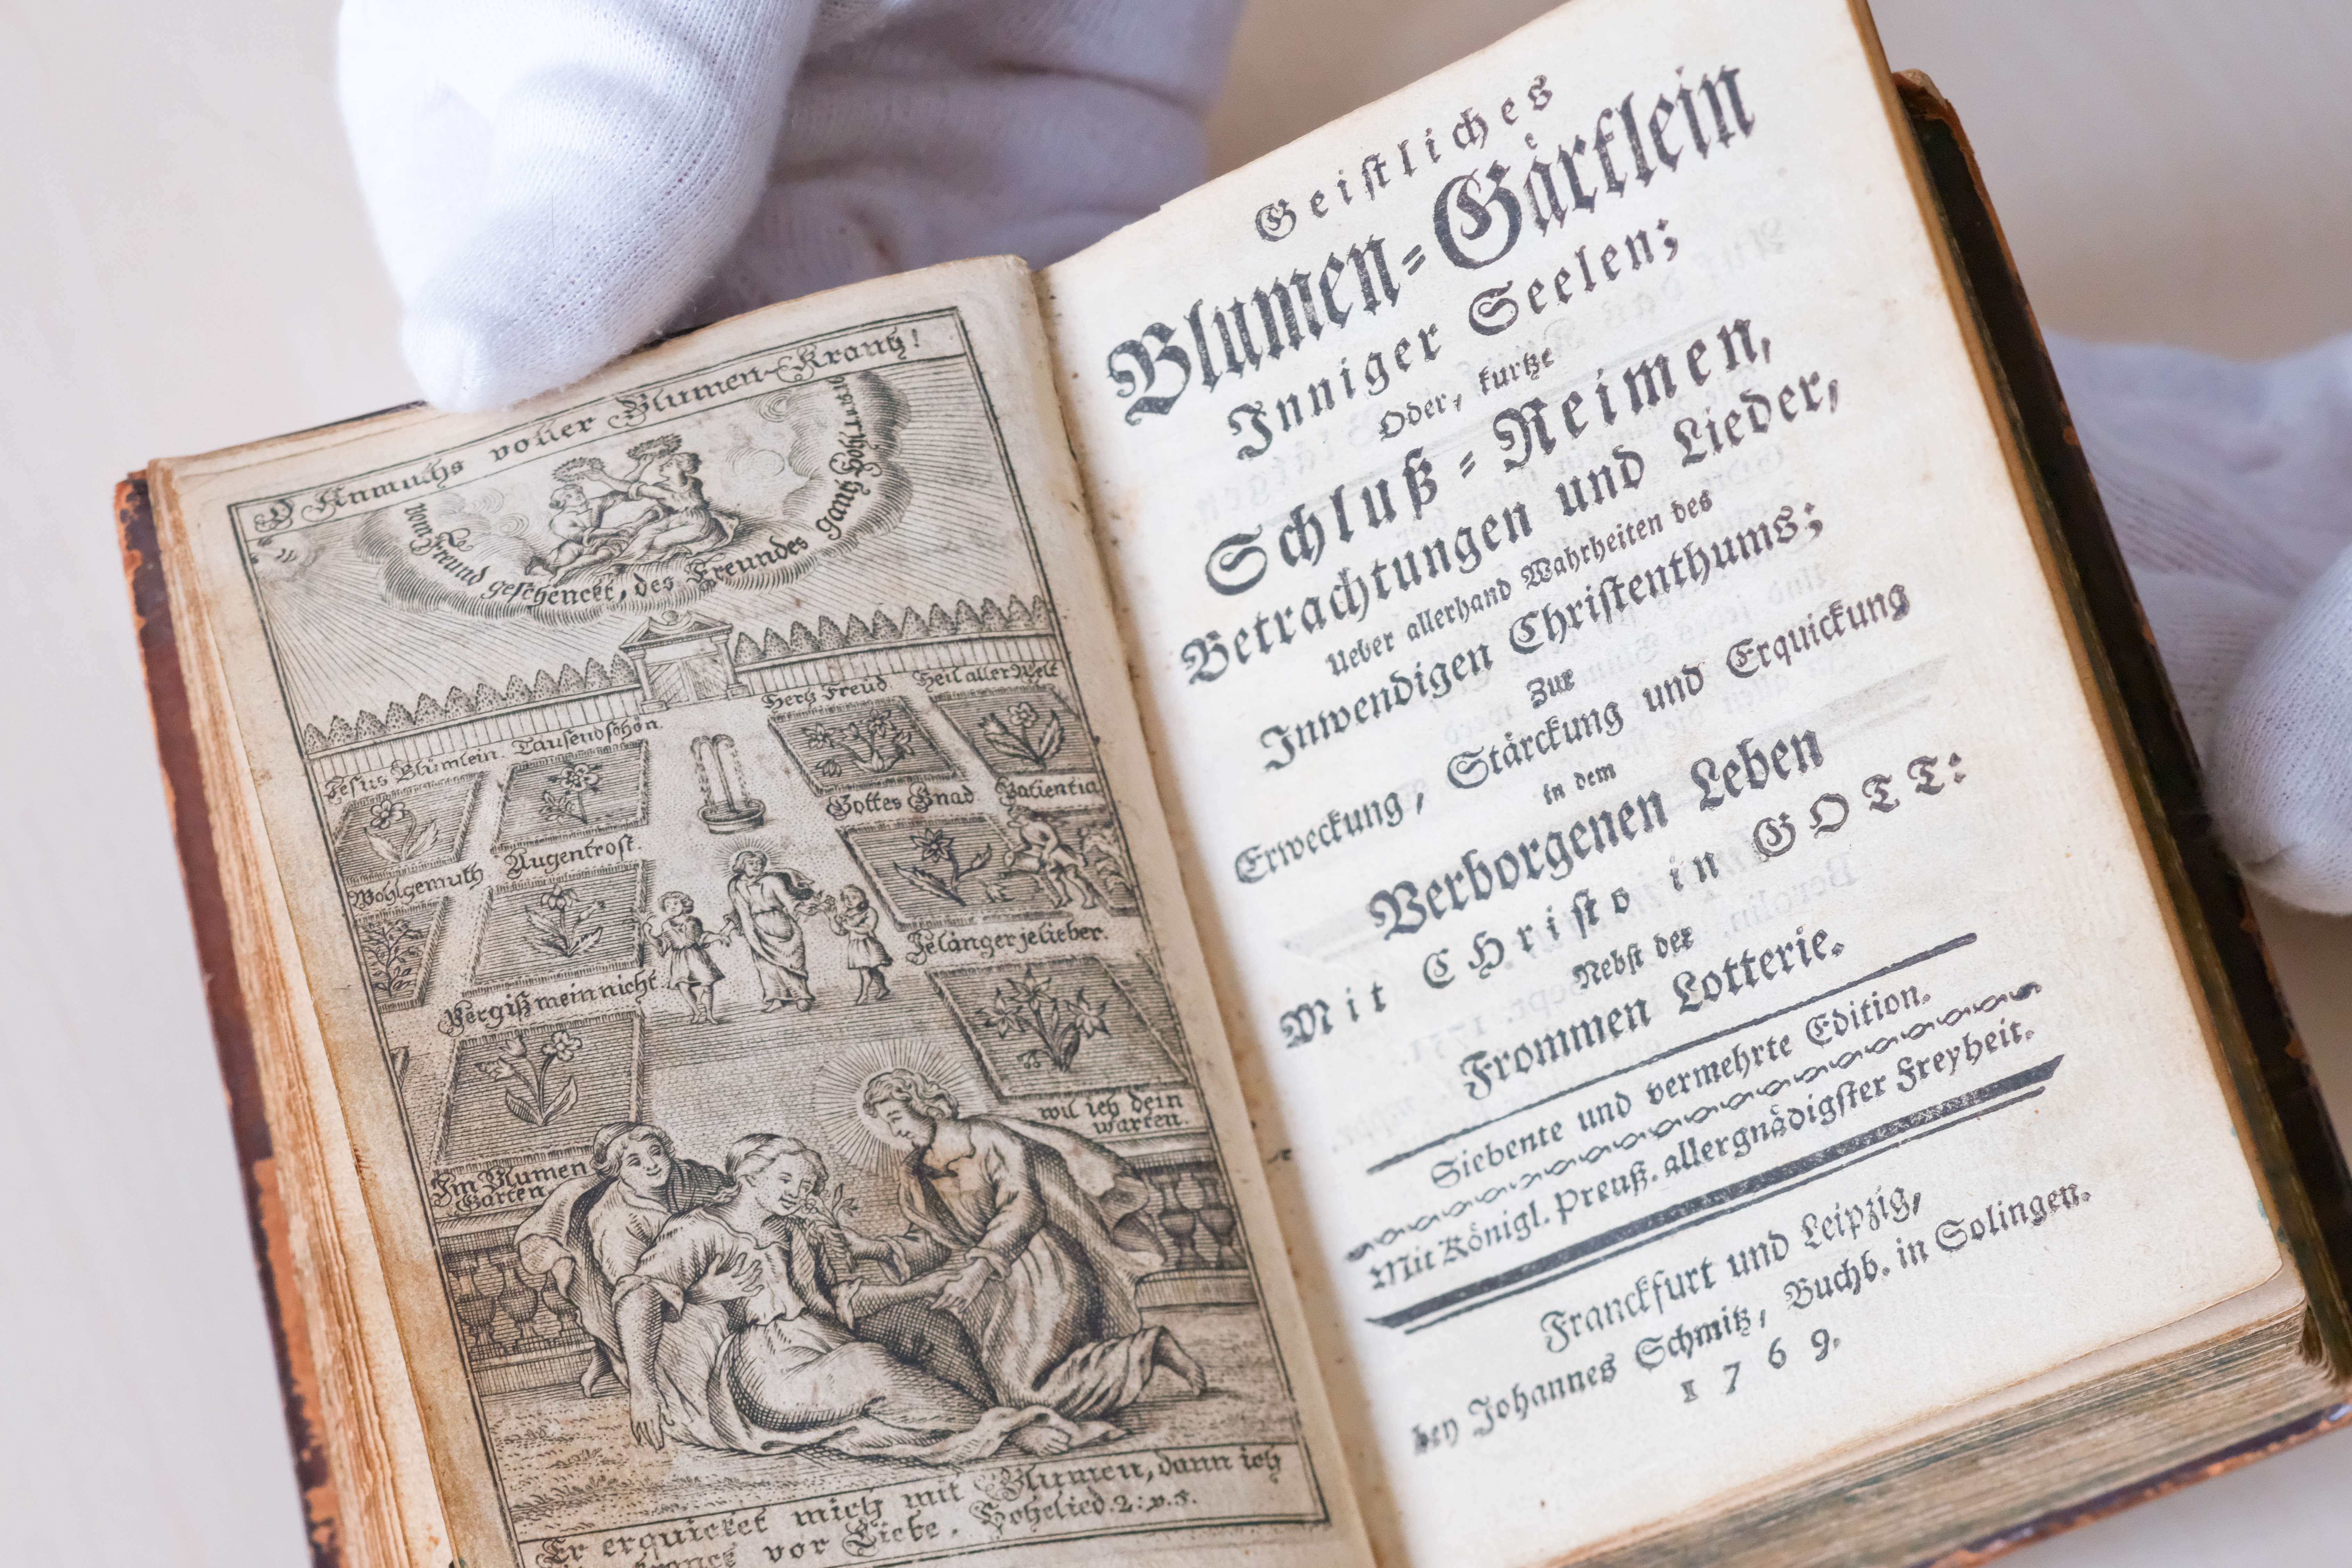 O Anmuths voller Blumen-Krantz!
vom Freund geschenckt, des Freundes gantz
Hertz Freud
Heil aller Welt
Jesus Blümlein.
Tausendschön
Gottes Gnad
Patientia
Wohlgemuth
Augentrost.
Jelängerjelieber.
Vergiß mein nicht.
wil ich dein
warten.
Im Blumen
Garten
Er erquicket mich mit Blumen, dann ich
kranck vor Liebe. Hohelied. 2: v. 5.
Geistliches
Blumen-Gärtlein
Inniger Seelen;
Oder, kurtze
Schluß-Reimen,
Betrachtungen und Lieder,
Ueber allerhand Wahrheiten des
Inwendigen Christenthums;
Zur
Erweckung, Stärckung und Erquickung
in dem
Verborgenen Leben
Mit CHristo in GOTT:
Nebst der
Frommen Lotterie.
Siebente und vermehrte Edition.
Mit Königl. Preuß. allergnädigster Freyheit.
Franckfurt und Leipzig,
bey Johannes Schmitz, Buchb. in Solingen.
1769.